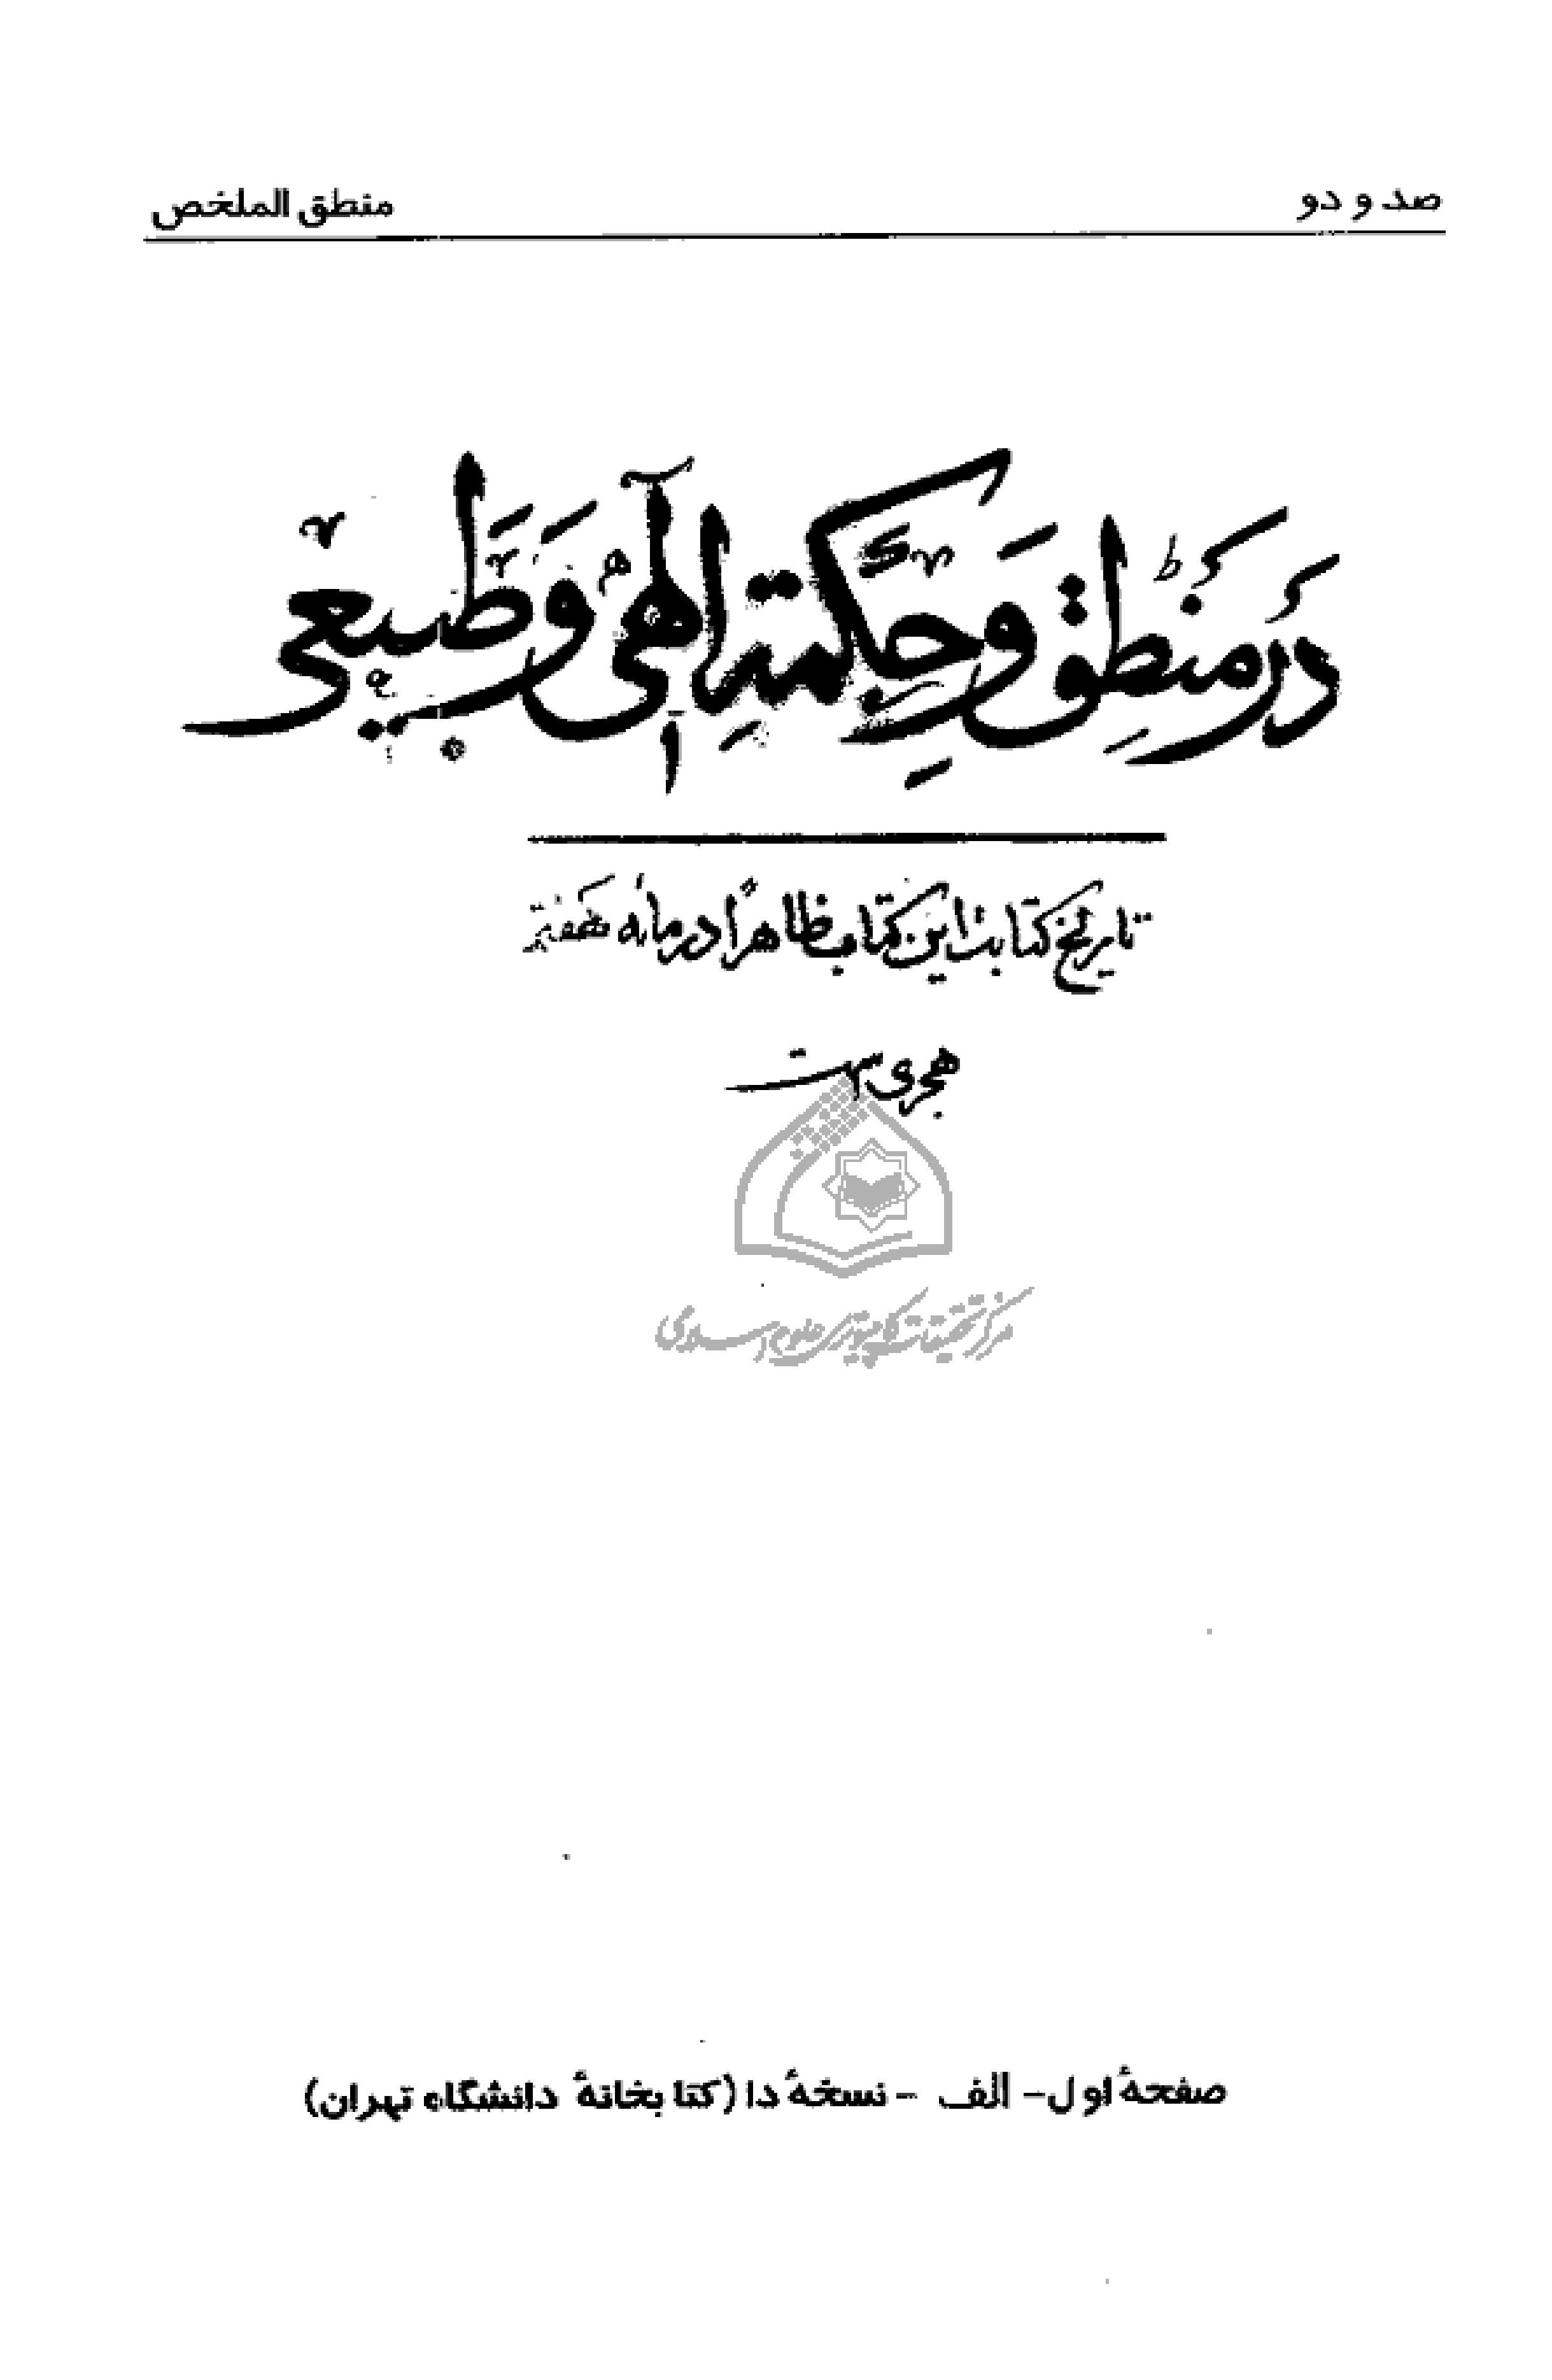 صد و دو
منطق الملخص
در منطق و حکمة الهی و طبیعی
تاریخ کتابت این کتاب ظاهراً در مائه هفتم
هجری است
مرکز تحقیقات کامپیوتری علوم اسلامی
صفحهٔ اول- الف - نسخهٔ دا (کتابخانهٔ دانشگاه تهران)